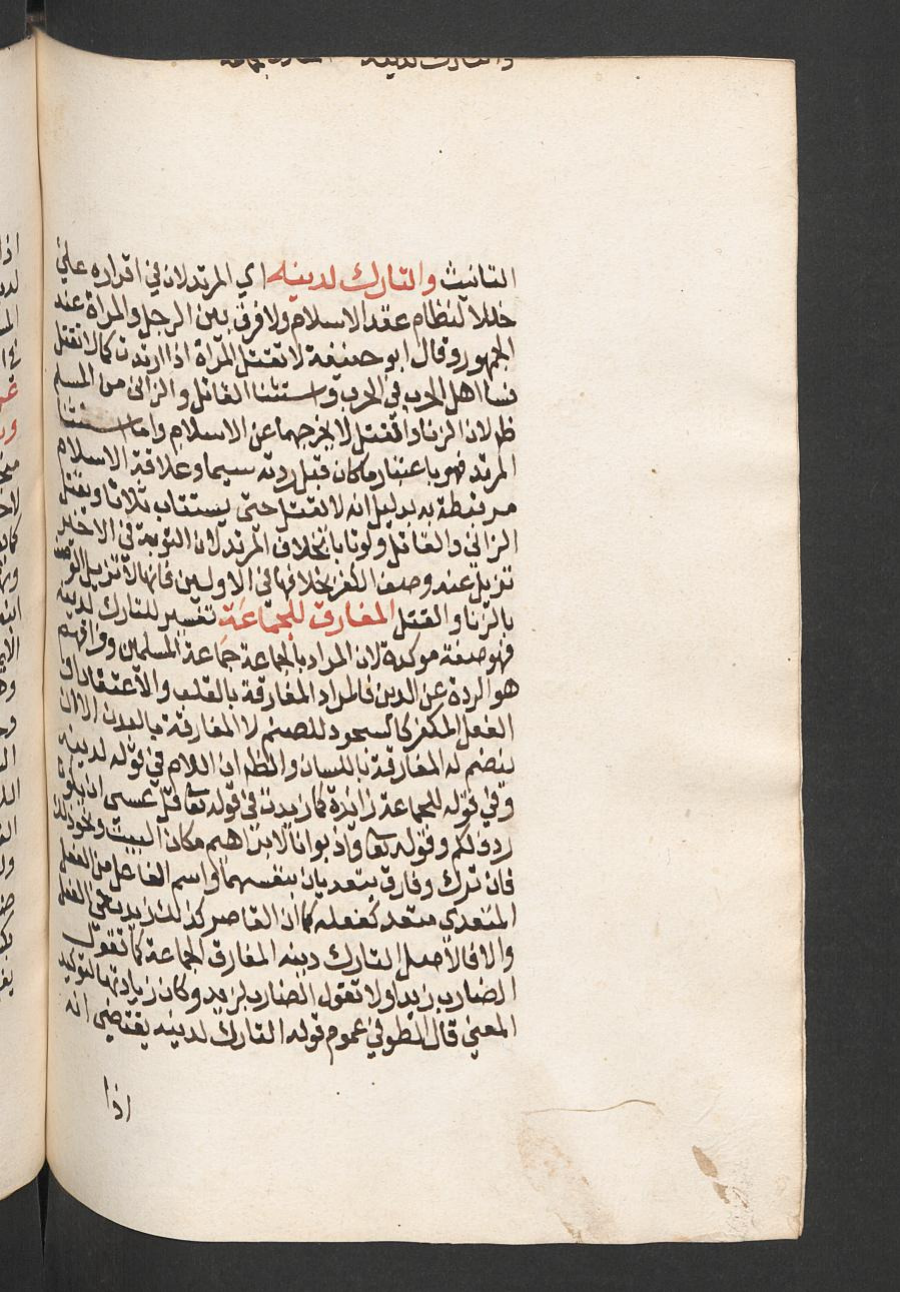 والتارك لدينه المفارق للجماعة
التانيث والتارك لدينه اي المرتد لان في اقراره على
خللا لنظام عقد الاسلام ولا فرق بين الرجل والمراة عند
الجمهور وقال ابو حنيفة لا تقتل المراة اذا ارتدت كما لا تقتل
نسا اهل الحرب في الحرب واستثنا القاتل والزاني من المسلم
ظ لان الزنا والقتل لا يخرجهما عن الاسلام واما استثنا
المرتد فهو باعتبار ما كان قبل ردته سيما وعلاقة الاسلام
مرتبطة به بدليل انه لا يقتل حتى يستتاب ثلاثا ويقتل
الزاني والقاتل ولو تابا بخلاف المرتد لان التوبة في الاخير
تزيل عنه وصف الكفر بخلافها في الاولين فانها لا تزيل الوصف
بالزنا والقتل المفارق للجماعة تفسير للتارك لدينه
فهو صفة موكدة لان المراد بالجماعة جماعة المسلمين وفراقهم
هو الردة عن الدين فالمراد المفارقة بالقلب والاعتقاد او
الفعل المكفر كالسجود للصنم لا المفارقة بالبدن الا ان
ينضم له المفارقة باللسان والظ ان اللام في قوله لدينه
وفي قوله للجماعة زايدة كما زيدت في قوله تعا قل عسى ان يكون
ردف لكم وقوله تعا واذ بوانا لابراهيم مكان البيت ونحو ذلك
فان ترك وفارق يتعديان بنفسهما واسم الفاعل من الفعل
المتعدي متعد كفعله كما ان القاصر كذلك
والا فالاصل التارك دينه المفارق الجماعة كما تقول
الضارب زيدا ولا تقول الضارب لزيد وكان زيادتها لتوكيد
المعنى قال الطوفي عموم قوله التارك لدينه يقتضي انه
اذا